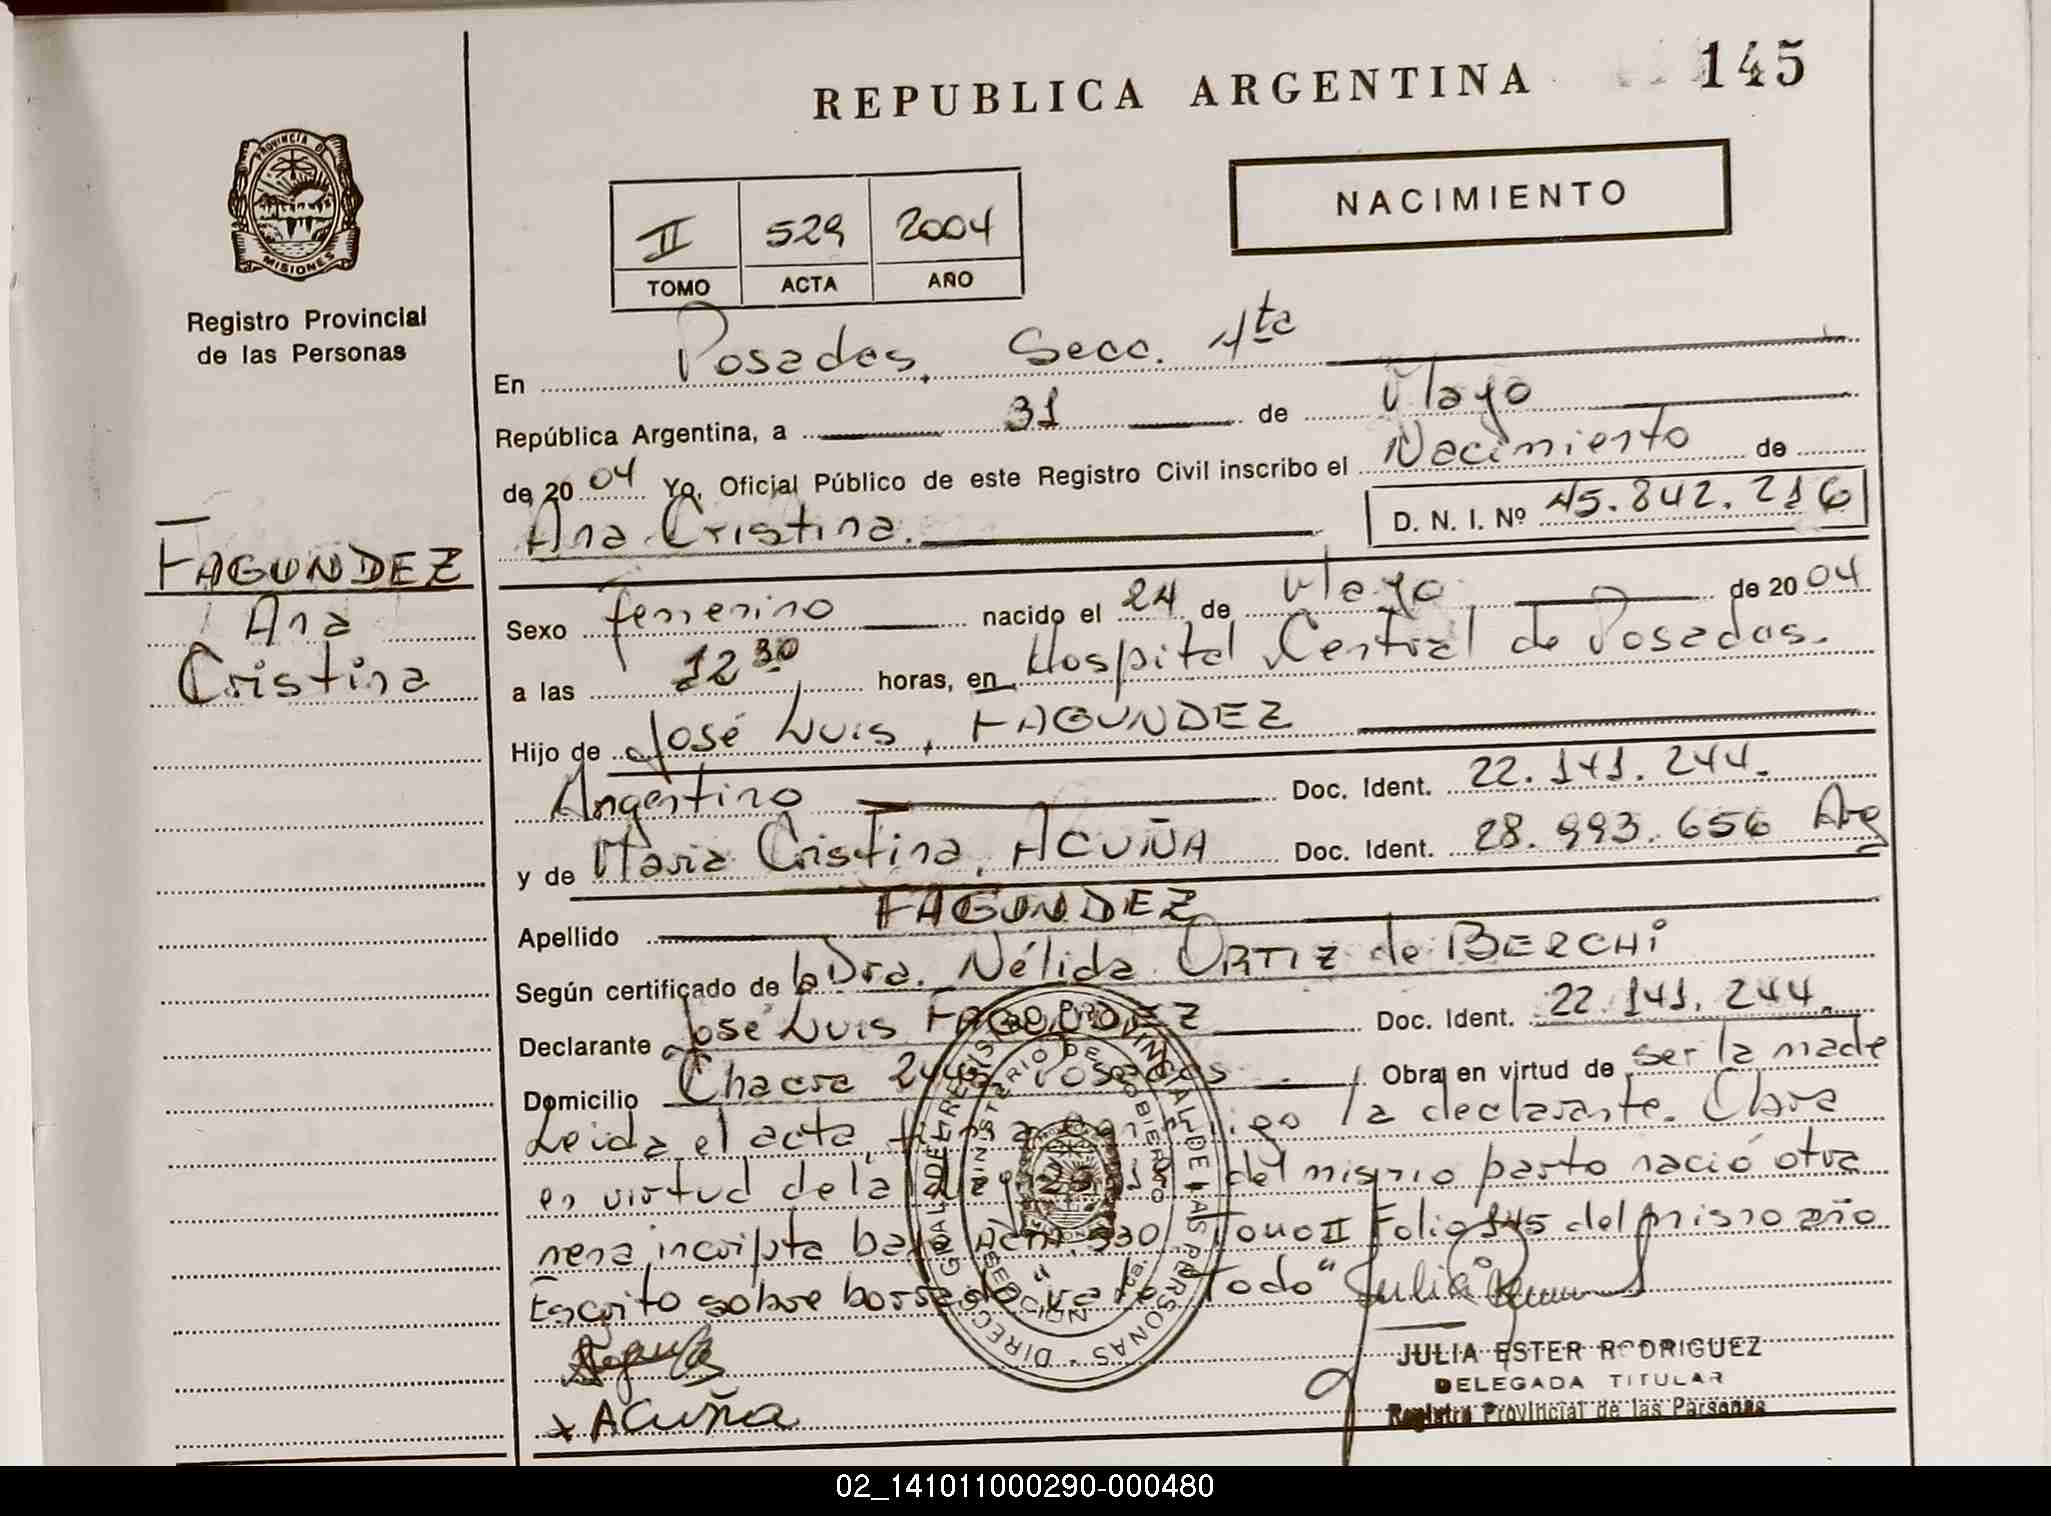 REPUBLICA ARGENTINA
145
PROVINCIA DE
MISIONES
Registro Provincial
de las Personas
NACIMIENTO
II 529 2004
TOMO ACTA AÑO
En Posadas, Secc. 4ta
República Argentina, a 31 de Mayo
de 2004 Yo, Oficial Público de este Registro Civil inscribo el Nacimiento de
Ana Cristina. D. N. I. Nº 45.842.216
FAGUNDEZ
Ana
Cristina
Sexo femenino nacido el 24 de Mayo de 2004
a las 12 30 horas, en Hospital Central de Posadas.
Hijo de José Luis, FAGUNDEZ
Argentino Doc. Ident. 22.141.244.
y de Maria Cristina, ACUÑA Doc. Ident. 28.993.656 Arg
Apellido FAGUNDEZ
Según certificado de la Dra. Nélida ORTIZ de BERCHi
Declarante José Luis FAGUNDEZ Doc. Ident. 22.141.244.
Domicilio Chacra Posadas Obra en virtud de ser la made
Leida el acta, la declarante.
en virtud de la del mismo parto nació otra
nena, incripta bajo 530 Tomo II Folio 145 del mismo año
Escrito sobre borrado vale Todo"
Acuña
JULIA ESTER RODRIGUEZ
DELEGADA TITULAR
Registro Provincial de las Personas
DIREC. GRAL. DEL REGISTRO PROVINCIAL DE LAS PERSONAS
MINISTERIO DE GOBIERNO
02_141011000290-000480